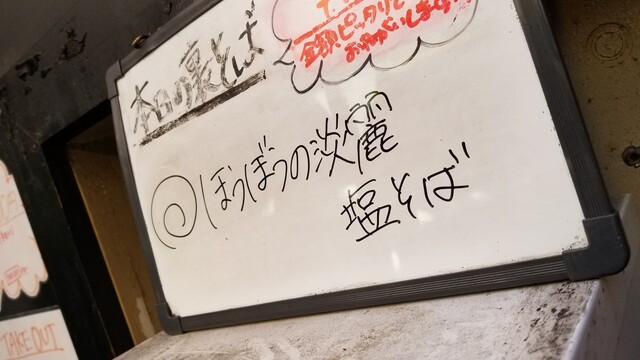 本日の裏そば
金額ピッタリで
おねがいします
@ほうぼうの淡麗
塩そば
TAKE OUT